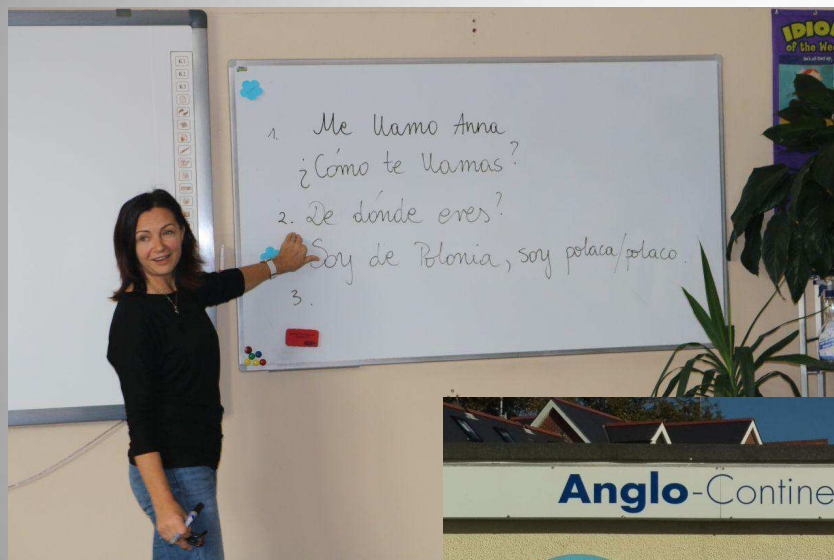 K1
K2
K3
IDIO
of the We
1. Me llamo Anna
¿Cómo te llamas?
2. De dónde eres?
Soy de Polonia, soy polaca/polaco.
3.
Anglo-Contine